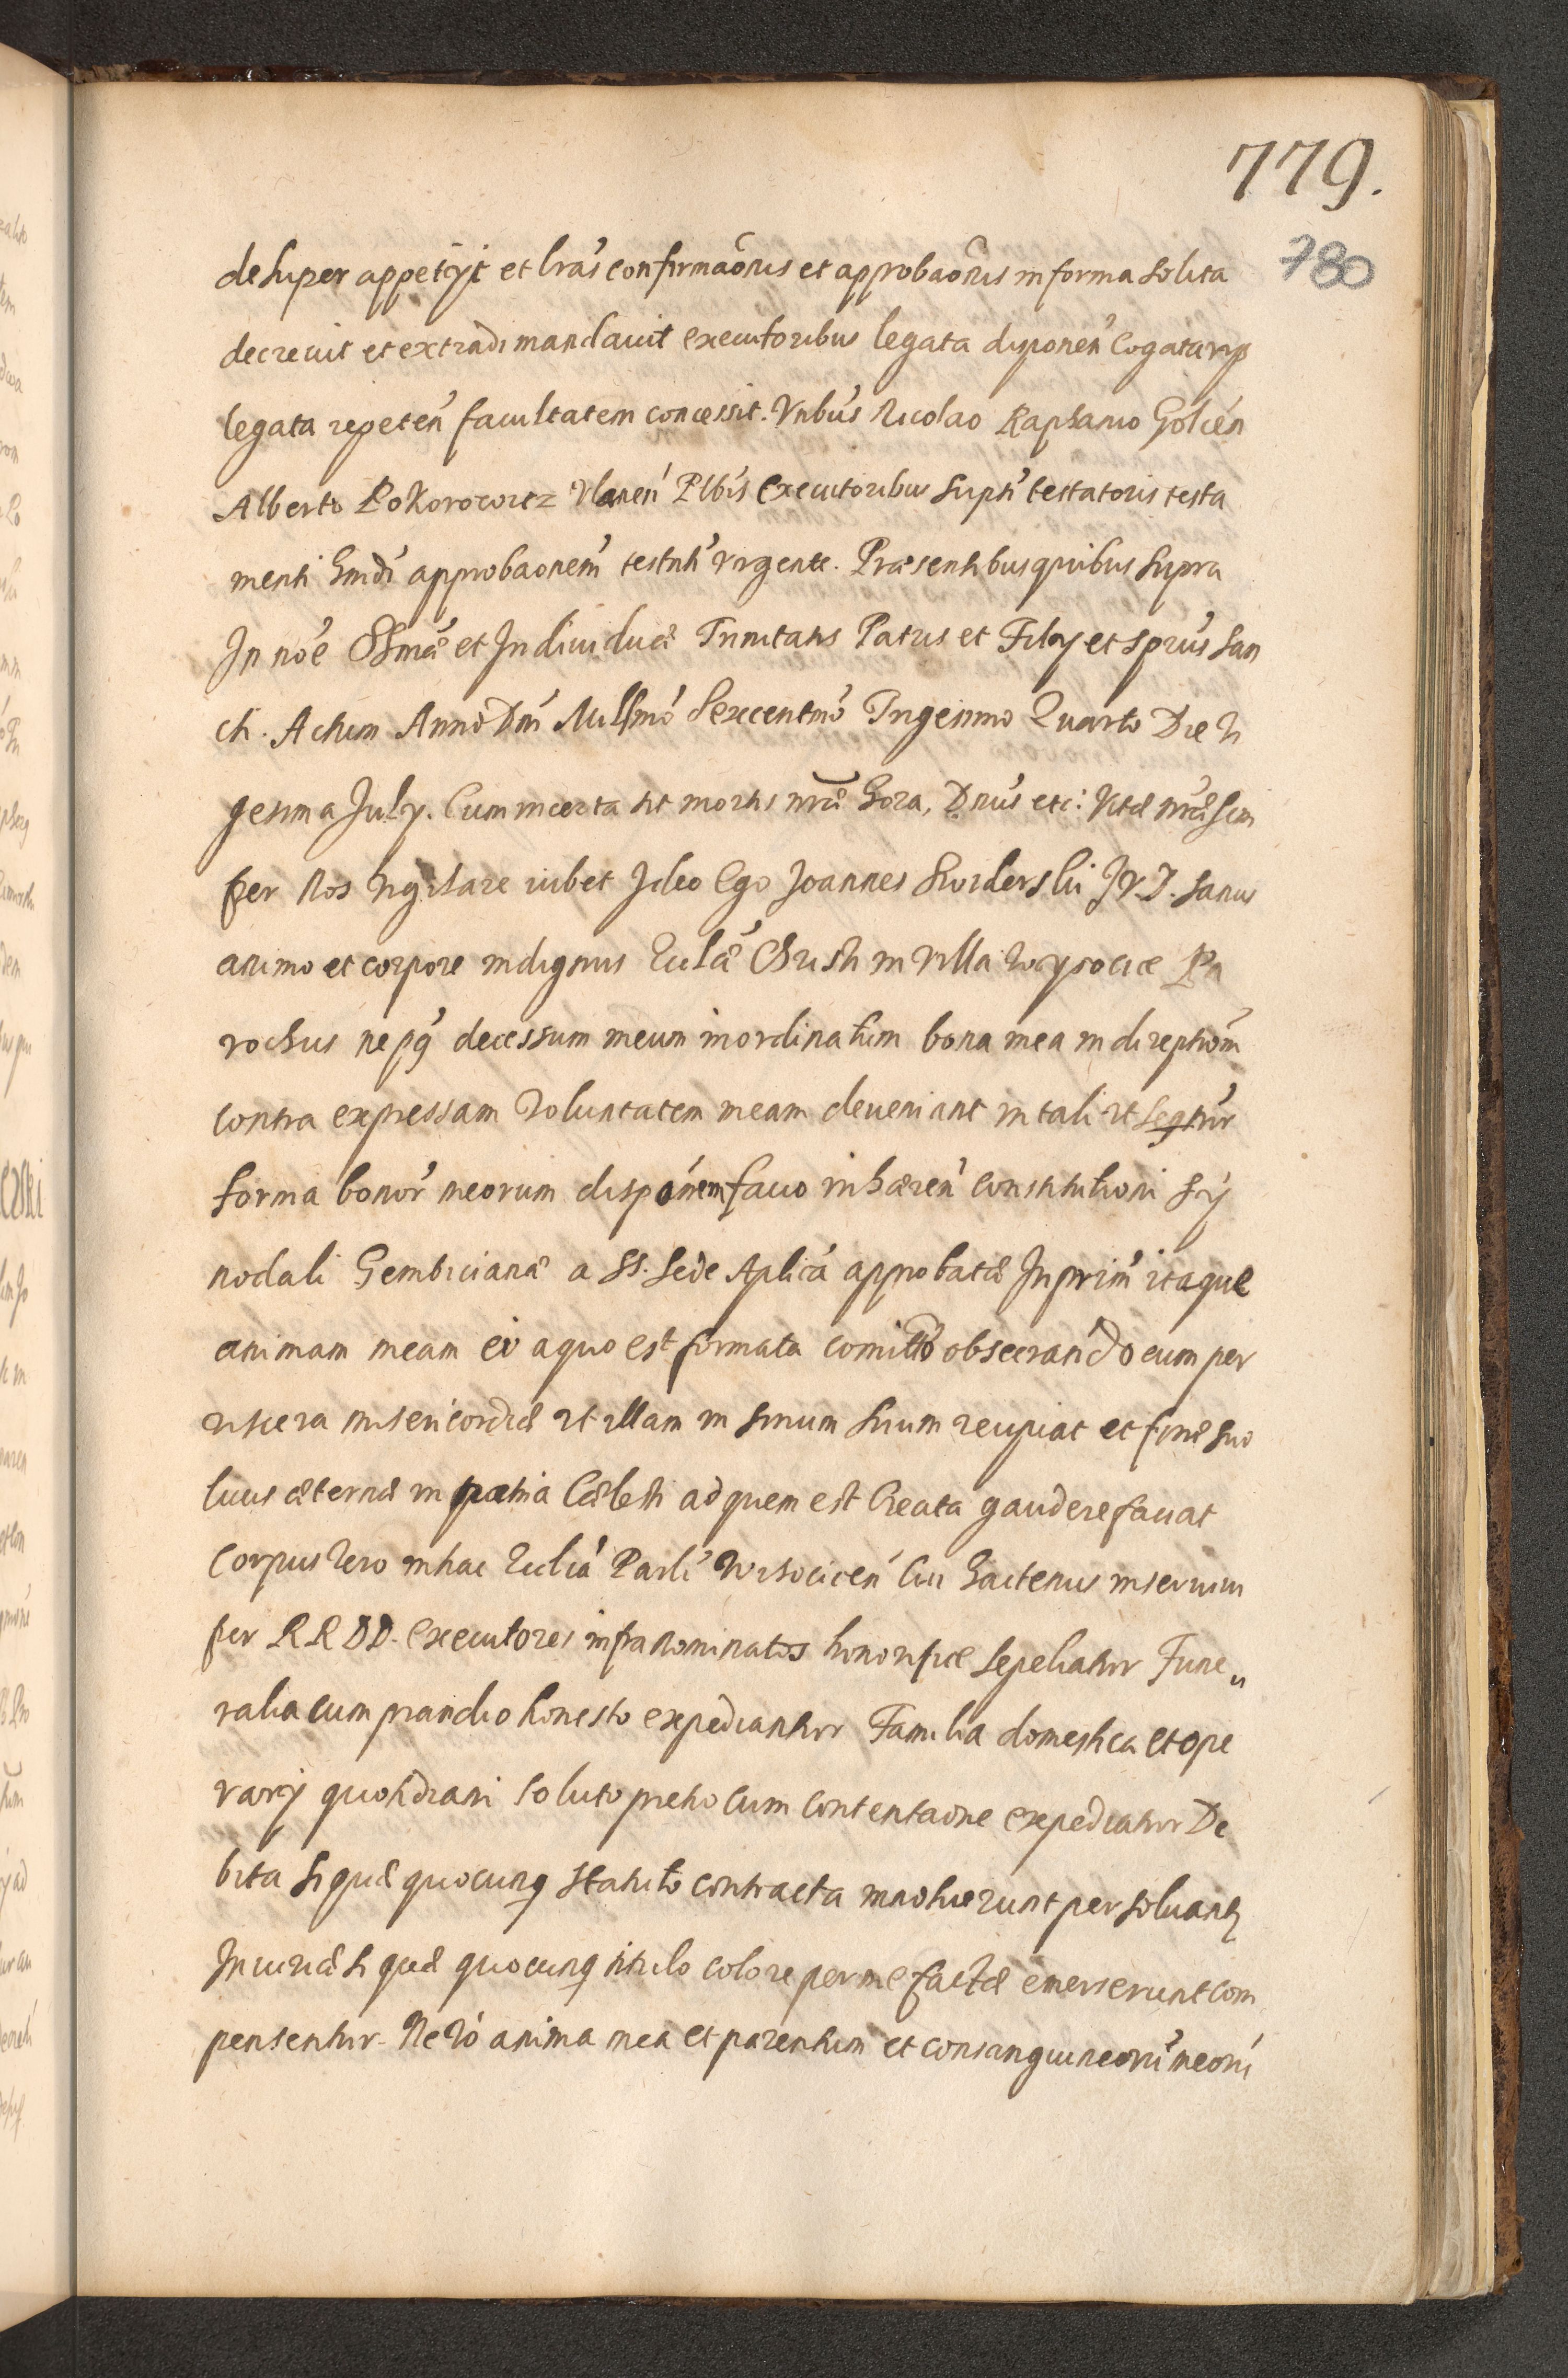 779.
780
desuper appetijt et lrãs confirmaõnis et approbaõnis in forma solita
decreuit et extradi mandauit executoribus legata disponen̄ Legatarijs
legata repeten̄ facultatem concessit. Vnbūs Nicolao Raphanio Golien̄
Alberto Pokorowicz Vlanen̄ Plbīs executoribus supti testatoris testa
menti hmdi approbaonem̄ testnti vrgente. Præsentibus quibus supra
In noē SSmæ et Indiuiduæ Trinitatis Patris et Filij et Sprūs San
cti. Actum Anno Dni Millmō Sexcentmō Trigesimo Quarto Die Vi
gesima July. Cum incerta sit mortis nrǣ hora, Dnūs etc: Vitæ nrǣ sem
per nos vigilare iubet Ideo Ego Joannes Swiderski J.V.D. sanus
animo et corpore indignus Eclǣ Christi in Villa Wysocice Pa
rochus ne pq̄ decessum meum inordinatim bona mea in direptiom̄
contra expressam Voluntatem meam deueniant in tali vt seqtūr
forma bonor̄ meorum dispōnem facio inhæren̄ constitutioni Sy
nodali Gembicianæ a SS. Sede Aplicā approbatæ Inprim̄ itaque
animam meam ei a quo est formata comittō obsecrando eum per
viscera misericordiæ vt illam in sinum suum recipiat et fine suo
lucis æternæ in patria Cælesti ad quem est Creata gaudere faciat
Corpus Vero in hac Eccliā Parli Wisocicen̄ Cui hactenus inseruiui
per RRDD. Executores infranominatos honorifice sepeliatur Fune„
ralia cum prandio honesto expediantur Familia domestica et ope
rarij quotidiani soluto pretio cum contentaone expediatur De
bita si quæ quocunq statuto contracta innotuerunt persoluantr
Iniuriæ si quæ quocunq titulo colore per me factæ emerserunt com
pensentur. Ne Vō anima mea et parentum et consanguineorū meorū